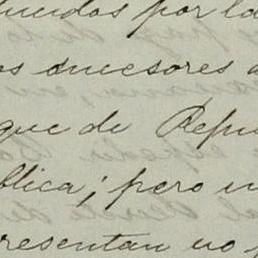 por la
os sucesores
que de Repu
blica; pero
resentan no